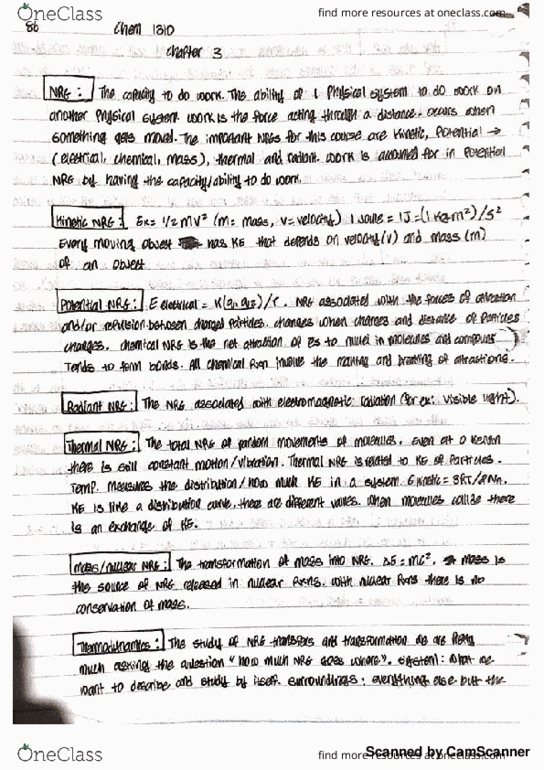 OneClass
find more resources at oneclass.com
86 Chem 1310
Chapter 3
NRG: The capacity to do work. The ability of 1 Physical system to do work on
another physical system. work is the force acting through a distance. occurs when
something gets moved. The important NRGs for this course are kinetic, potential →
(electrical, chemical, mass), thermal and radiant. work is accounted for in potential
NRG by having the capacity/ability to do work.
Kinetic NRG: Ek= 1/2 MV² (m= mass, v=velocity) 1 Joule = 1J =(1 Kg m²)/s²
Every moving object has KE that depends on velocity (v) and mass (m)
of an object
Potential NRG: E electrical = K(q₁ q₂)/r. NRG associated with the forces of attraction
and/or repulsion between charged particles. changes when charges and distance of particles
changes. chemical NRG is the net attraction of es to nuclei in molecules and compound
Tends to form bonds. All chemical rxn involve the making and breaking of attractions.
Radiant NRG: The NRG associated with electromagnetic radiation (for ex: visible light).
Thermal NRG: The total NRG of random movements of molecules. Even at 0 kelvin
there is still constant motion/vibration. Thermal NRG is related to KE of particles.
Temp. measures the distribution/how much KE in a system. E kinetic = 3RT/2NA.
KE is like a distribution curve, there are different values. when molecules collide there
is an exchange of KE.
Mass/nuclear NRG: The transformation of mass into NRG. ΔE = mc². mass is
the source of NRG released in nuclear rxns. with nuclear rxns there is no
conservation of mass.
Thermodynamics: The study of NRG transfers and transformation
much asking the question "how much NRG goes where". system: what we
want to describe and study by itself. surroundings: everything else but the
OneClass
find more resources at oneclass.com
Scanned by CamScanner